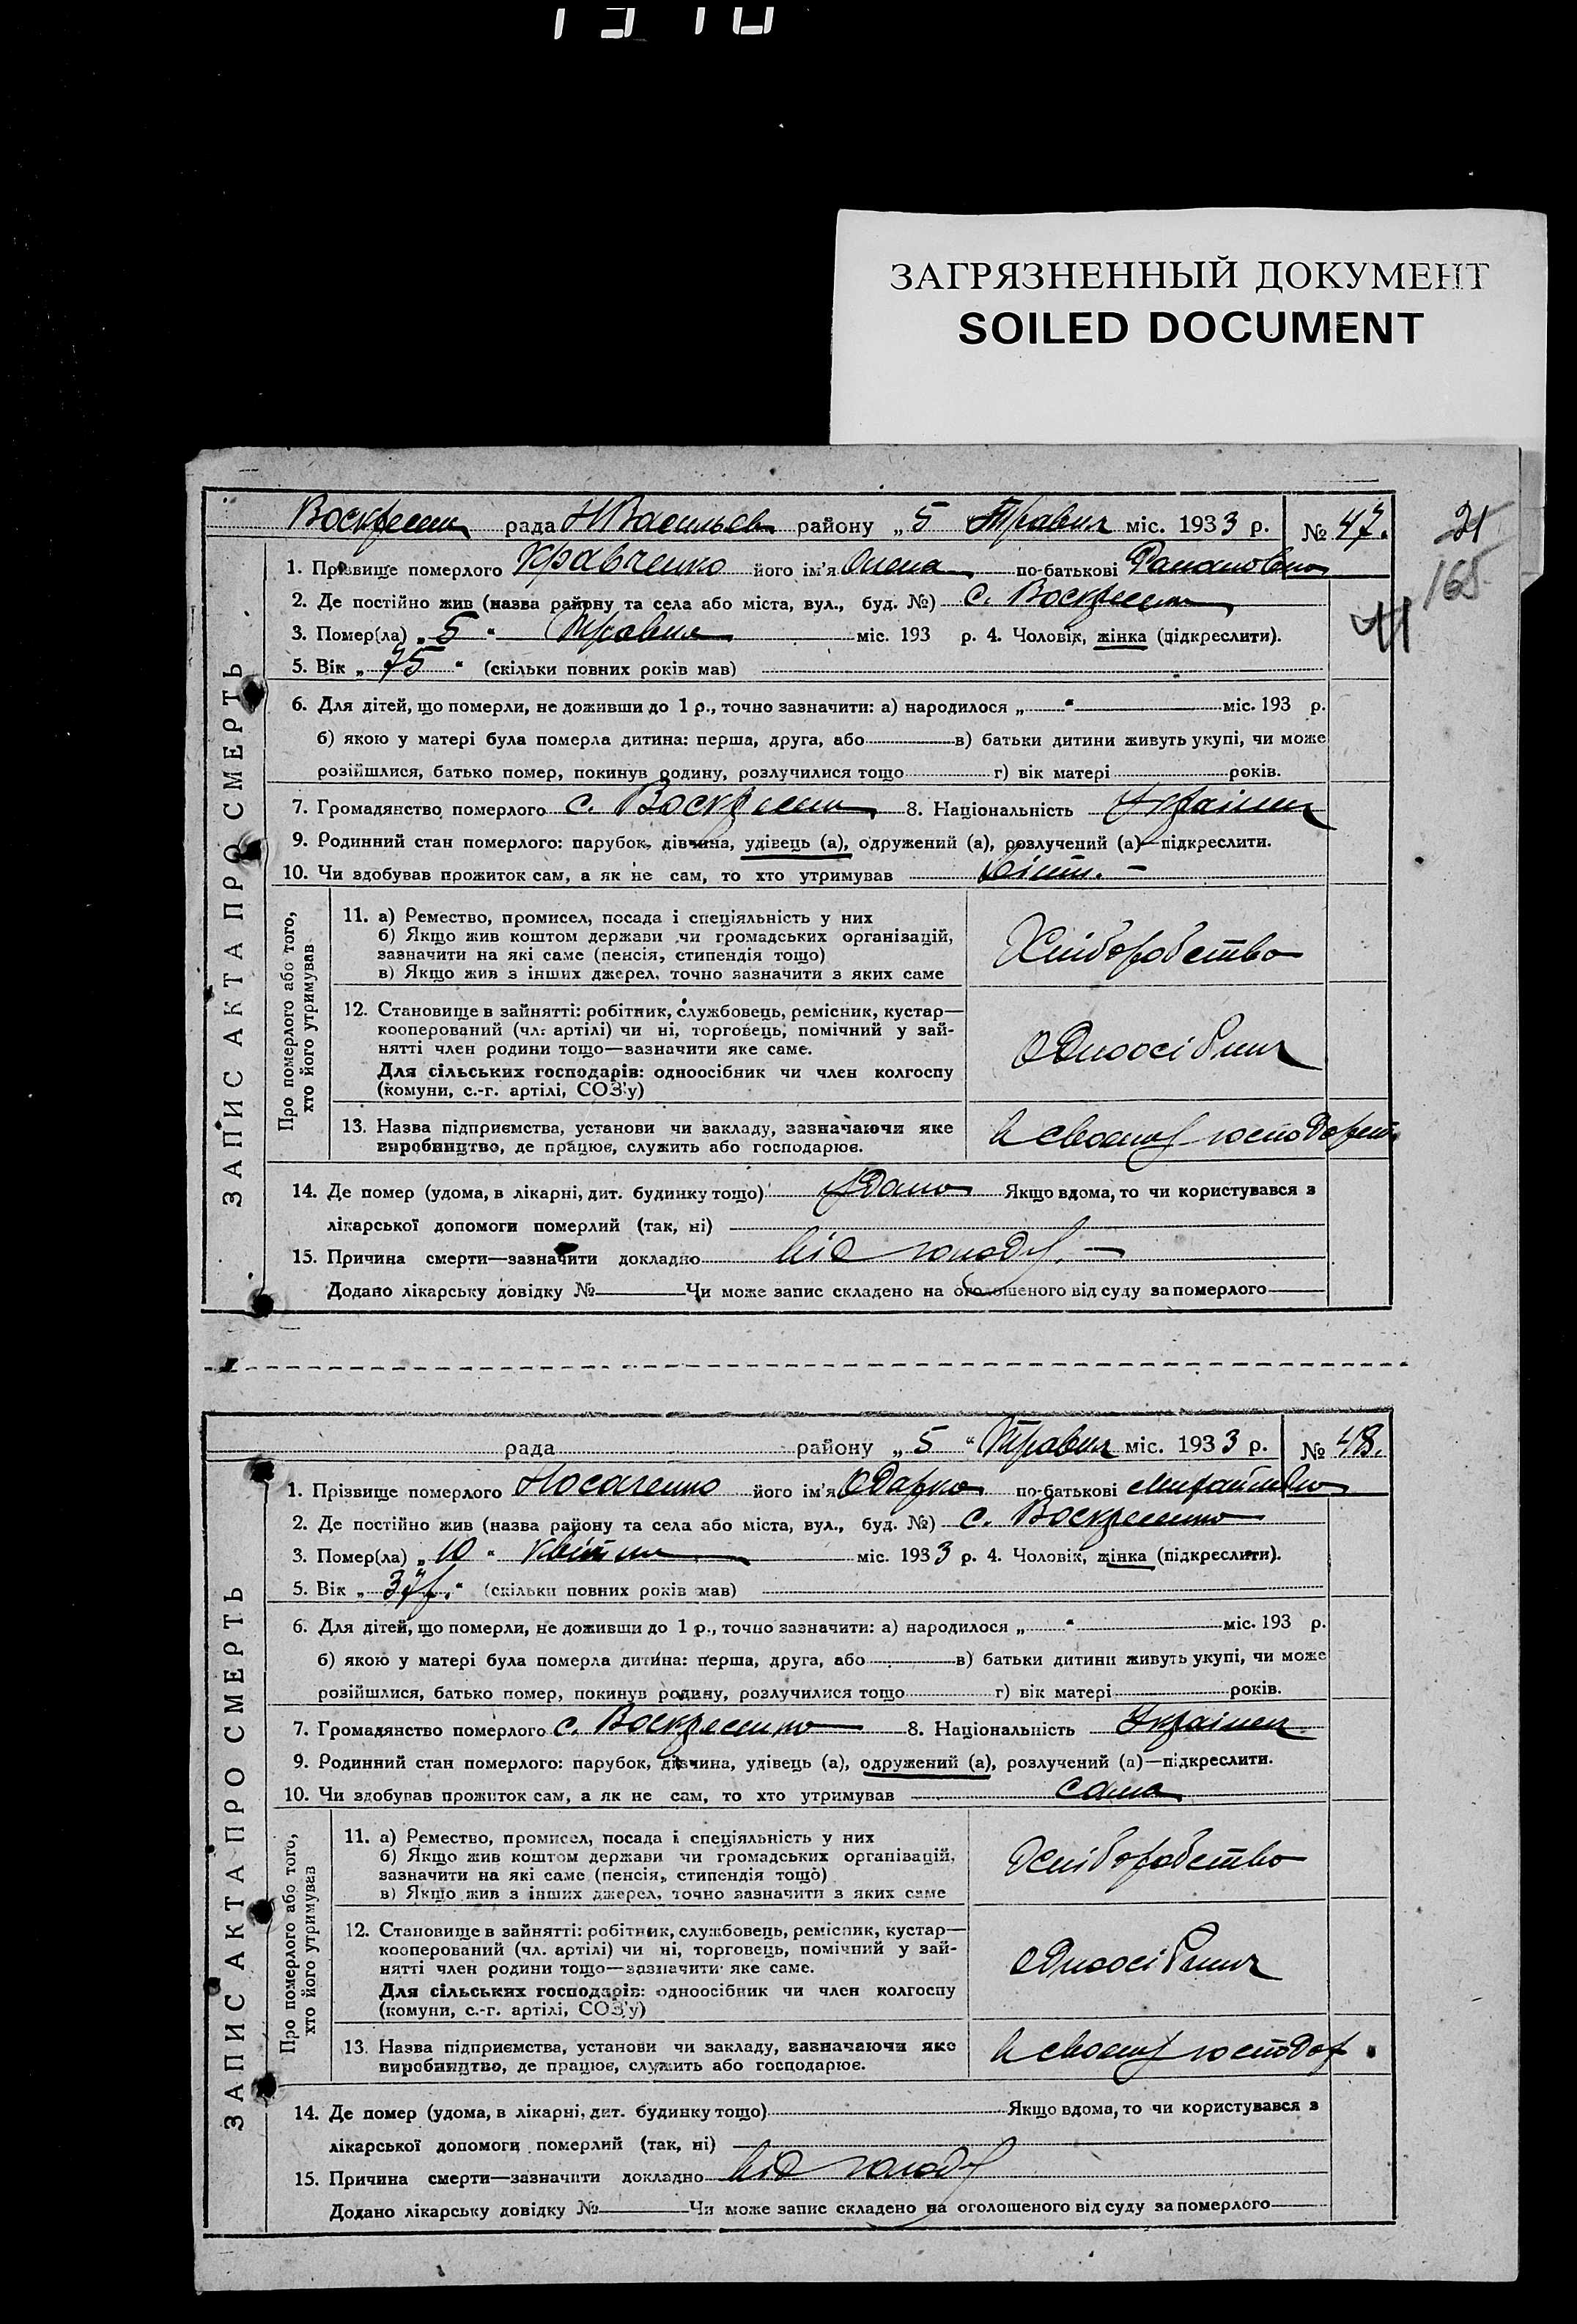 ЗАГРЯЗНЕННЫЙ ДОКУМЕНТ
SOILED DOCUMENT
рада Н Васильев району „ 5 Травня міс. 1933 р. № 47.
21
165
ЗАПИС АКТА ПРО СМЕРТЬ
1. Прізвище померлого Кравченко його ім'я Олена по-батькові
2. Де постійно жив (назва району та села або міста, вул., буд. №) с.
3. Помер(ла) „ 5 " Травня міс. 193 р. 4. Чоловік, жінка (підкреслити).
5. Вік „ 75 " (скільки повних років мав)
6. Для дітей, що померли, не доживши до 1 р., точно зазначити: а) народилося „ " міс. 193 р.
б) якою у матері була померла дитина: перша, друга, або в) батьки дитини живуть укупі, чи може
розійшлися, батько помер, покинув родину, розлучилися тощо г) вік матері років.
7. Громадянство померлого с. 8. Національність Українец
9. Родинний стан померлого: парубок, дівчина, удівець (а), одружений (а), розлучений (а)—підкреслити.
10. Чи здобував прожиток сам, а як не сам, то хто утримував
Про померлого або того,
хто його утримував
11. а) Ремество, промисел, посада і спеціяльність у них
б) Якщо жив коштом держави чи громадських організацій,
зазначити на які саме (пенсія, стипендія тощо)
в) Якщо жив з інших джерел, точно зазначити з яких саме
Хліборобство
12. Становище в зайнятті: робітник, службовець, ремісник, кустар—
кооперований (чл. артілі) чи ні, торговець, помічний у зай-
нятті член родини тощо—зазначити яке саме.
Для сільських господарів: одноосібник чи член колгоспу
(комуни, с.-г. артілі, СОЗ'у)
Одноосібник
13. Назва підприємства, установи чи закладу, зазначаючи яке
виробництво, де працює, служить або господарює.
в своему
14. Де помер (удома, в лікарні, дит. будинку тощо) Якщо вдома, то чи користувався з
лікарської допомоги померлий (так, ні)
15. Причина смерти—зазначити докладно від голоду
Додано лікарську довідку № Чи може запис складено на оголошеного від суду за померлого
рада району „ 5 " Травня міс. 1933 р. № 48.
ЗАПИС АКТА ПРО СМЕРТЬ
1. Прізвище померлого Носаченко його ім'я Одарка по-батькові
2. Де постійно жив (назва району та села або міста, вул., буд. №) с.
3. Помер(ла) „ 10 " квітня міс. 1933 р. 4. Чоловік, жінка (підкреслити).
5. Вік „ " (скільки повних років мав)
6. Для дітей, що померли, не доживши до 1 р., точно зазначити: а) народилося „ " міс. 193 р.
б) якою у матері була померла дитина: перша, друга, або в) батьки дитини живуть укупі, чи може
розійшлися, батько помер, покинув родину, розлучилися тощо г) вік матері років.
7. Громадянство померлого с. 8. Національність Українец
9. Родинний стан померлого: парубок, дівчина, удівець (а), одружений (а), розлучений (а)—підкреслити.
10. Чи здобував прожиток сам, а як не сам, то хто утримував сама
Про померлого або того,
хто його утримував
11. а) Ремество, промисел, посада і спеціяльність у них
б) Якщо жив коштом держави чи громадських організацій,
зазначити на які саме (пенсія, стипендія тощо)
в) Якщо жив з інших джерел, точно зазначити з яких саме
Хліборобство
12. Становище в зайнятті: робітник, службовець, ремісник, кустар—
кооперований (чл. артілі) чи ні, торговець, помічний у зай-
нятті член родини тощо—зазначити яке саме.
Для сільських господарів: одноосібник чи член колгоспу
(комуни, с.-г. артілі, СОЗ'у)
Одноосібник
13. Назва підприємства, установи чи закладу, зазначаючи яке
виробництво, де працює, служить або господарює.
в своему господар
14. Де помер (удома, в лікарні, дит. будинку тощо) Якщо вдома, то чи користувався з
лікарської допомоги померлий (так, ні)
15. Причина смерти—зазначити докладно від голоду
Додано лікарську довідку № Чи може запис складено на оголошеного від суду за померлого